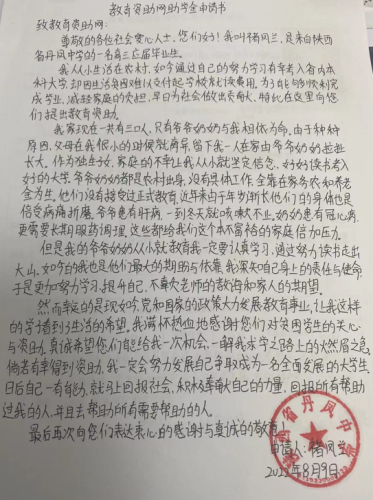 教育资助网助学金申请书
致教育资助网:
尊敬的各位社会爱心人士,您们好!我叫褚凤兰,是来自陕西
省丹凤中学的一名高三应届毕业生。
我从小生活在农村,如今通过自己的努力学习有幸考入省内本
科大学,却因生活困难难以支付起学校就读费用,为了能够顺利完
成学业,减轻家庭的负担,早日为社会做出贡献,特此在这里向您
们提出教育资助。
我家现在一共有三口人,只有爷爷奶奶与我相依为命,由于种种
原因,父母在我很小的时候就离异,留下我一人在家由爷爷奶奶拉扯
长大。作为独生女,家庭的不幸让我从小就坚定信念,好好读书考入
好的大学。爷爷奶奶都是农村出身,没有具体工作,全靠在家务农和养老
金为生。他们没有接受过正式教育,近年来由于年岁渐长他们的身体也是
倍受病痛折磨,爷爷患有肝病,一到冬天就咳嗽不止,奶奶患有冠心病,
更需要长期服药调理,这些都给我们这个本不富裕的家庭倍加压力。
但是我的爷爷奶奶从小就教育我一定要认真学习,通过努力读书走出
大山,如今的我也是他们最大的期盼与依靠,我深知自己身上的责任与使命,
于是更加努力学习,提升自己,不辜负老师的教诲和家人的期望。
然而幸运的是现如今,党和国家的政策大力发展教育事业,让我这样
的学子看到了生活的希望。我满怀热血地感谢您们对贫困学生的关心
与资助,真诚希望您们能给我一次机会,一解我求学之路上的燃眉之急,
倘若有幸得到资助,我一定会努力发展自己争取成为一名全面发展的大学生,
日后自己一有能力,就马上回报社会,积极奉献自己的力量,回报所有帮助
过我的人,并且去帮助所有需要帮助的人。
最后再次向您们表达衷心的感谢与真诚的敬意!
申请人:褚凤兰
2022年8月9日
省丹凤中学